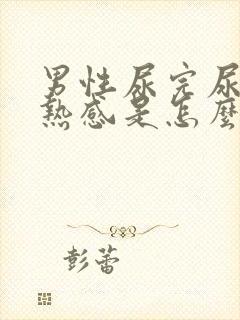 男性尿完尿
熱感是怎麼
彭蕾